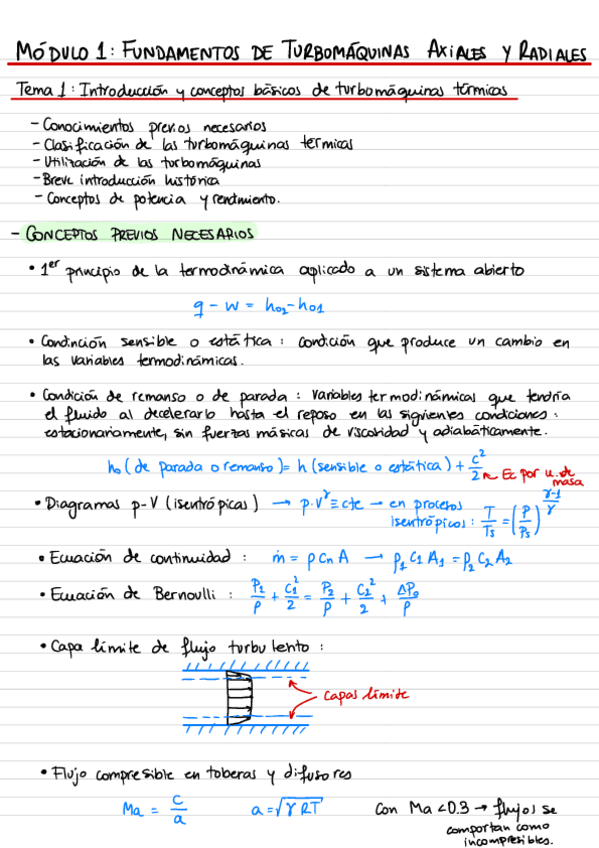 MÓDULO 1: FUNDAMENTOS DE TURBOMÁQUINAS AXIALES Y RADIALES
Tema 1: Introducción y conceptos básicos de turbomáquinas térmicas
- Conocimientos previos necesarios
- Clasificación de las turbomáquinas térmicas
- Utilización de las turbomáquinas
- Breve introducción histórica
- Conceptos de potencia y rendimiento.
- CONCEPTOS PREVIOS NECESARIOS
• 1er principio de la termodinámica aplicado a un sistema abierto
q - w = h02 - h01
• Condinción sensible o estática: condición que produce un cambio en
las variables termodinámicas.
• Condición de remanso o de parada: variables termodinámicas que tendría
el fluido al decelerarlo hasta el reposo en las siguientes condiciones:
estacionariamente, sin fuerzas másicas de viscosidad y adiabáticamente.
h0 (de parada o remanso) = h (sensible o estática) + c²/2 ↖ Ec por u. de masa
• Diagramas p-V (isentrópicas) → p·V^γ ≡ cte → en procesos
isentrópicos: T/Ts = (P/Ps)^((γ-1)/γ)
• Ecuación de continuidad: ṁ = ρ Cn A → ρ1 C1 A1 = ρ2 C2 A2
• Ecuación de Bernoulli: P1/ρ + C1²/2 = P2/ρ + C2²/2 + ΔP0/ρ
• Capa límite de flujo turbulento:
capas límite
• Flujo compresible en toberas y difusores
Ma = c/a a = √γRT Con Ma < 0.3 → flujos se
comportan como
incompresibles.